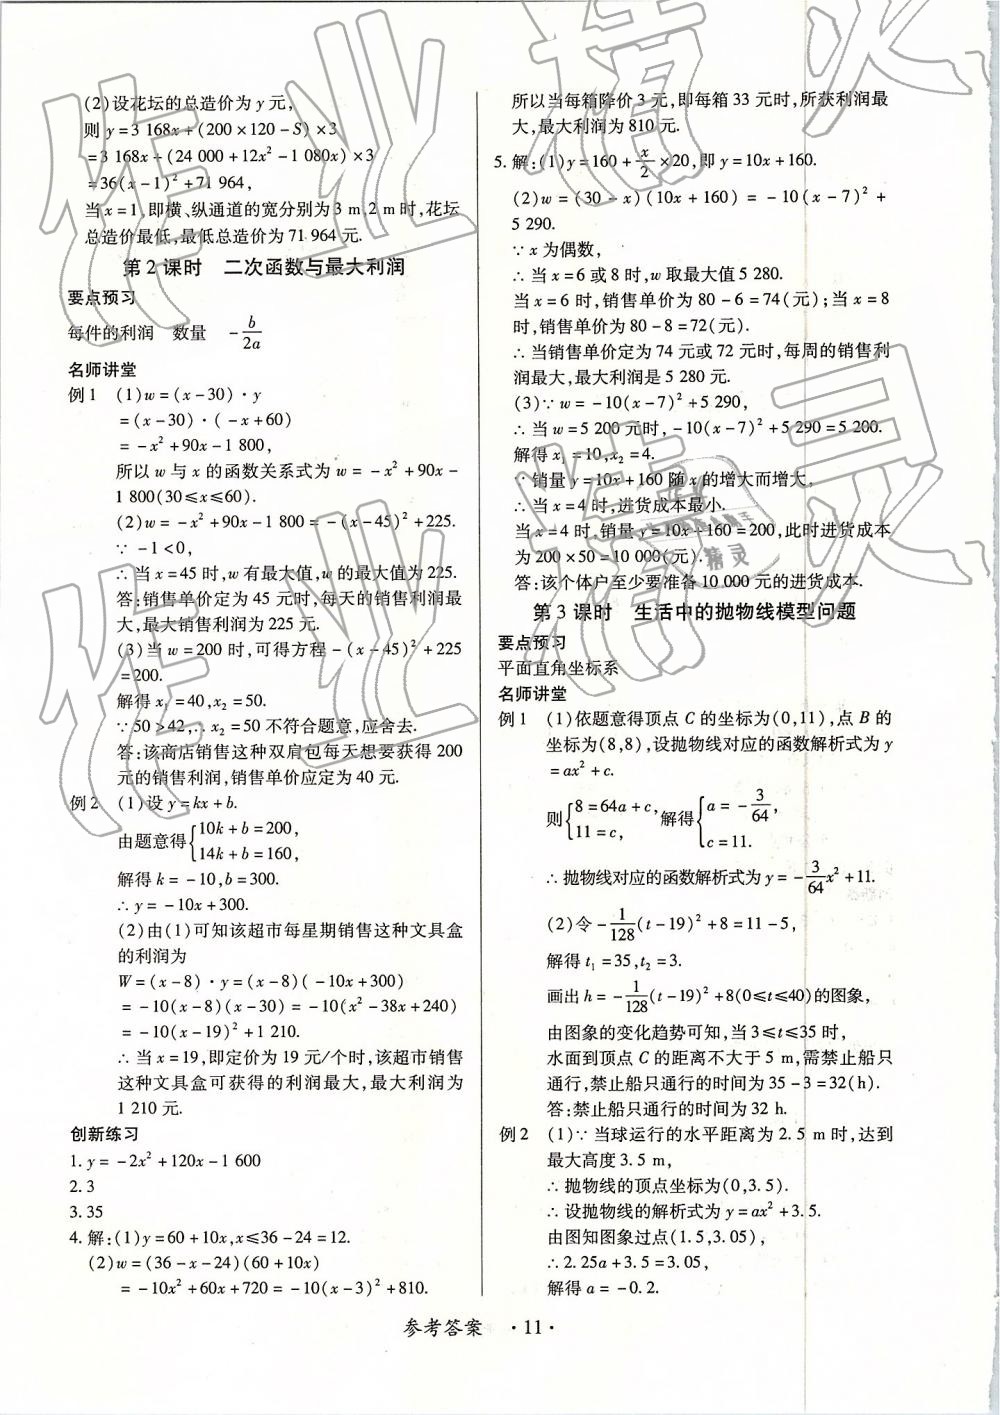 (2)设花坛的总造价为y元,
则y=3 168x+(200×120-S)×3
=3 168x+(24 000+12x²-1 080x)×3
=36(x-1)²+71 964,
当x=1,即横、纵通道的宽分别为3 m,2 m时,花坛
总造价最低,最低总造价为71 964元.
第2课时 二次函数与最大利润
要点预习
每件的利润 数量 -b/2a
名师讲堂
例1 (1)w=(x-30)·y
=(x-30)·(-x+60)
=-x²+90x-1 800,
所以w与x的函数关系式为w=-x²+90x-
1 800(30≤x≤60).
(2)w=-x²+90x-1 800=-(x-45)²+225.
∵-1<0,
∴当x=45时,w有最大值,w的最大值为225.
答:销售单价定为45元时,每天的销售利润最
大,最大销售利润为225元.
(3)当w=200时,可得方程-(x-45)²+225
=200.
解得x₁=40,x₂=50.
∵50>42,∴x₂=50不符合题意,应舍去.
答:该商店销售这种双肩包每天想要获得200
元的销售利润,销售单价应定为40元.
例2 (1)设y=kx+b.
由题意得{10k+b=200,
14k+b=160,
解得k=-10,b=300.
∴y=-10x+300.
(2)由(1)可知该超市每星期销售这种文具盒
的利润为
W=(x-8)·y=(x-8)(-10x+300)
=-10(x-8)(x-30)=-10(x²-38x+240)
=-10(x-19)²+1 210.
∴当x=19,即定价为19元/个时,该超市销售
这种文具盒可获得的利润最大,最大利润为
1 210元.
创新练习
1.y=-2x²+120x-1 600
2.3
3.35
4.解:(1)y=60+10x,x≤36-24=12.
(2)w=(36-x-24)(60+10x)
=-10x²+60x+720=-10(x-3)²+810.
所以当每箱降价3元,即每箱33元时,所获利润最
大,最大利润为810元.
5.解:(1)y=160+x/2×20,即y=10x+160.
(2)w=(30-x)(10x+160)=-10(x-7)²+
5 290.
∵x为偶数,
∴当x=6或8时,w取最大值5 280.
当x=6时,销售单价为80-6=74(元);当x=8
时,销售单价为80-8=72(元).
∴当销售单价定为74元或72元时,每周的销售利
润最大,最大利润是5 280元.
(3)∵w=-10(x-7)²+5 290,
∴当w=5 200元时,-10(x-7)²+5 290=5 200.
解得x₁=10,x₂=4.
∵销量y=10x+160随x的增大而增大,
∴当x=4时,进货成本最小.
当x=4时,销量y=10x+160=200,此时进货成本
为200×50=10 000(元).
答:该个体户至少要准备10 000元的进货成本.
第3课时 生活中的抛物线模型问题
要点预习
平面直角坐标系
名师讲堂
例1 (1)依题意得顶点C的坐标为(0,11),点B的
坐标为(8,8),设抛物线对应的函数解析式为y
=ax²+c.
则{8=64a+c, 11=c, 解得{a=-3/64, c=11.
∴抛物线对应的函数解析式为y=-3/64x²+11.
(2)令-1/128(t-19)²+8=11-5,
解得t₁=35,t₂=3.
画出h=-1/128(t-19)²+8(0≤t≤40)的图象,
由图象的变化趋势可知,当3≤t≤35时,
水面到顶点C的距离不大于5 m,需禁止船只
通行,禁止船只通行的时间为35-3=32(h).
答:禁止船只通行的时间为32 h.
例2 (1)∵当球运行的水平距离为2.5 m时,达到
最大高度3.5 m,
∴抛物线的顶点坐标为(0,3.5).
∴设抛物线的解析式为y=ax²+3.5.
由图知图象过点(1.5,3.05),
∴2.25a+3.5=3.05,
解得a=-0.2.
参考答案 ·11·
作业精灵
作业精灵
精灵